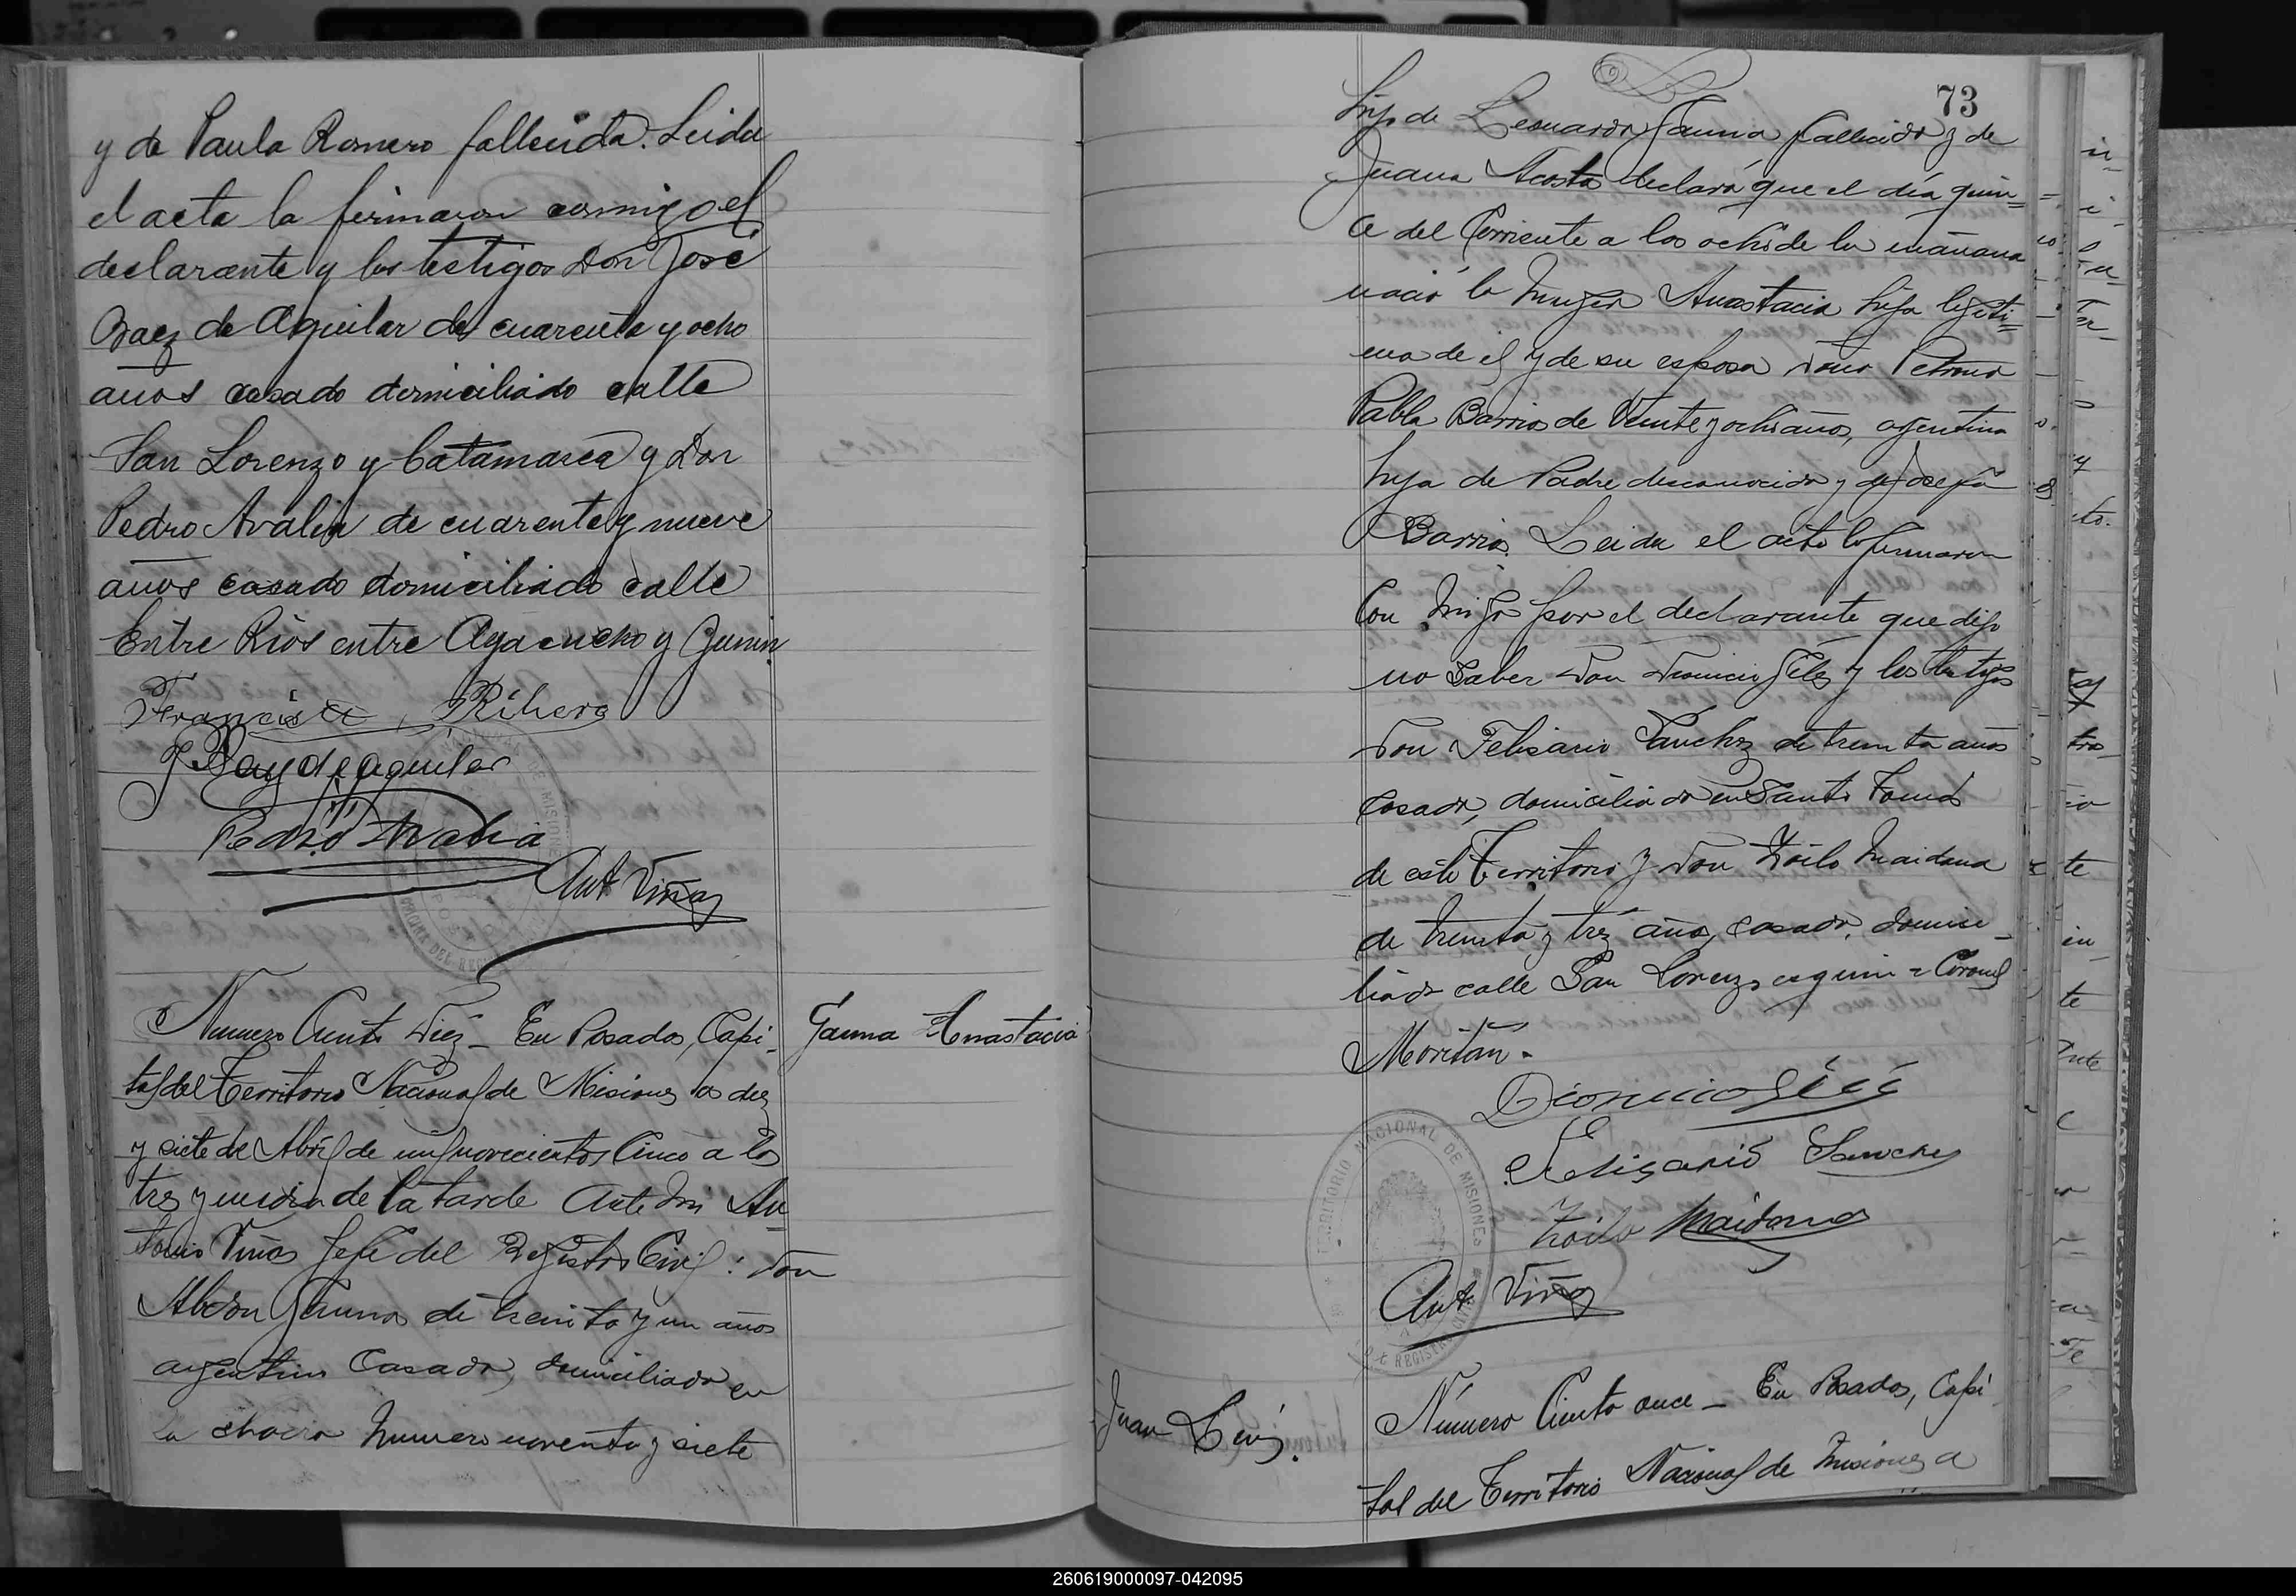 y de Paula Romero fallecida. Leida
el acta la firmaron conmigo el
declarante y los testigos Don José
Baez de Aguilar de cuarenta y ocho
años casado domiciliado calle
San Lorenzo y Catamarca y Don
Pedro Avalia de cuarenta y nueve
años casado domiciliado calle
Entre Rios entre Ayacucho y Junin
Francisco Ribero
J Baez de Aguilar
Pedro Avalia
Ant Viñas
Gauna Anastacia
Numero Ciento Diez - En Posadas, Capi-
tal del Territorio Nacional de Misiones a diez
y siete de Abril de mil novecientos Cinco a las
tres y media de la tarde Ante mi An
tonio Viñas Jefe del Registro Civil: Don
Abdon Gauna de treinta y un años
argentino Casado, domiciliado en
la chacra numero noventa y siete
73
hijo de Leonardo Gauna fallecido y de
Juana Acosta declaró que el día quin=
ce del Corriente a las ocho de la mañana
nació la mujer Anastacia hija legiti=
ma de el y de su esposa Doña Petrona
Pabla Barrios de Veinte y ocho años, argentina
hija de Padre desconocido y de Josefa
Barrios. Leida el acta la firmaron
Con migo por el declarante que dijo
no Saber Don Dionicio Gélez y los testigos
Don Felisario Sanchez de treinta años
Casado, domiciliado en Santo Tomás
de este Territorio y Don Zoilo Maidana
de treinta y tres años, casado, domici-
liado calle San Lorenzo esquina Coronel
Moritan.
Felisario Sanchez
Zoilo Maidana
Ant Viñas
TERRITORIO NACIONAL DE MISIONES
Número Ciento once - En Posadas, Capi
tal del Territorio Nacional de Misiones a
260619000097-042095